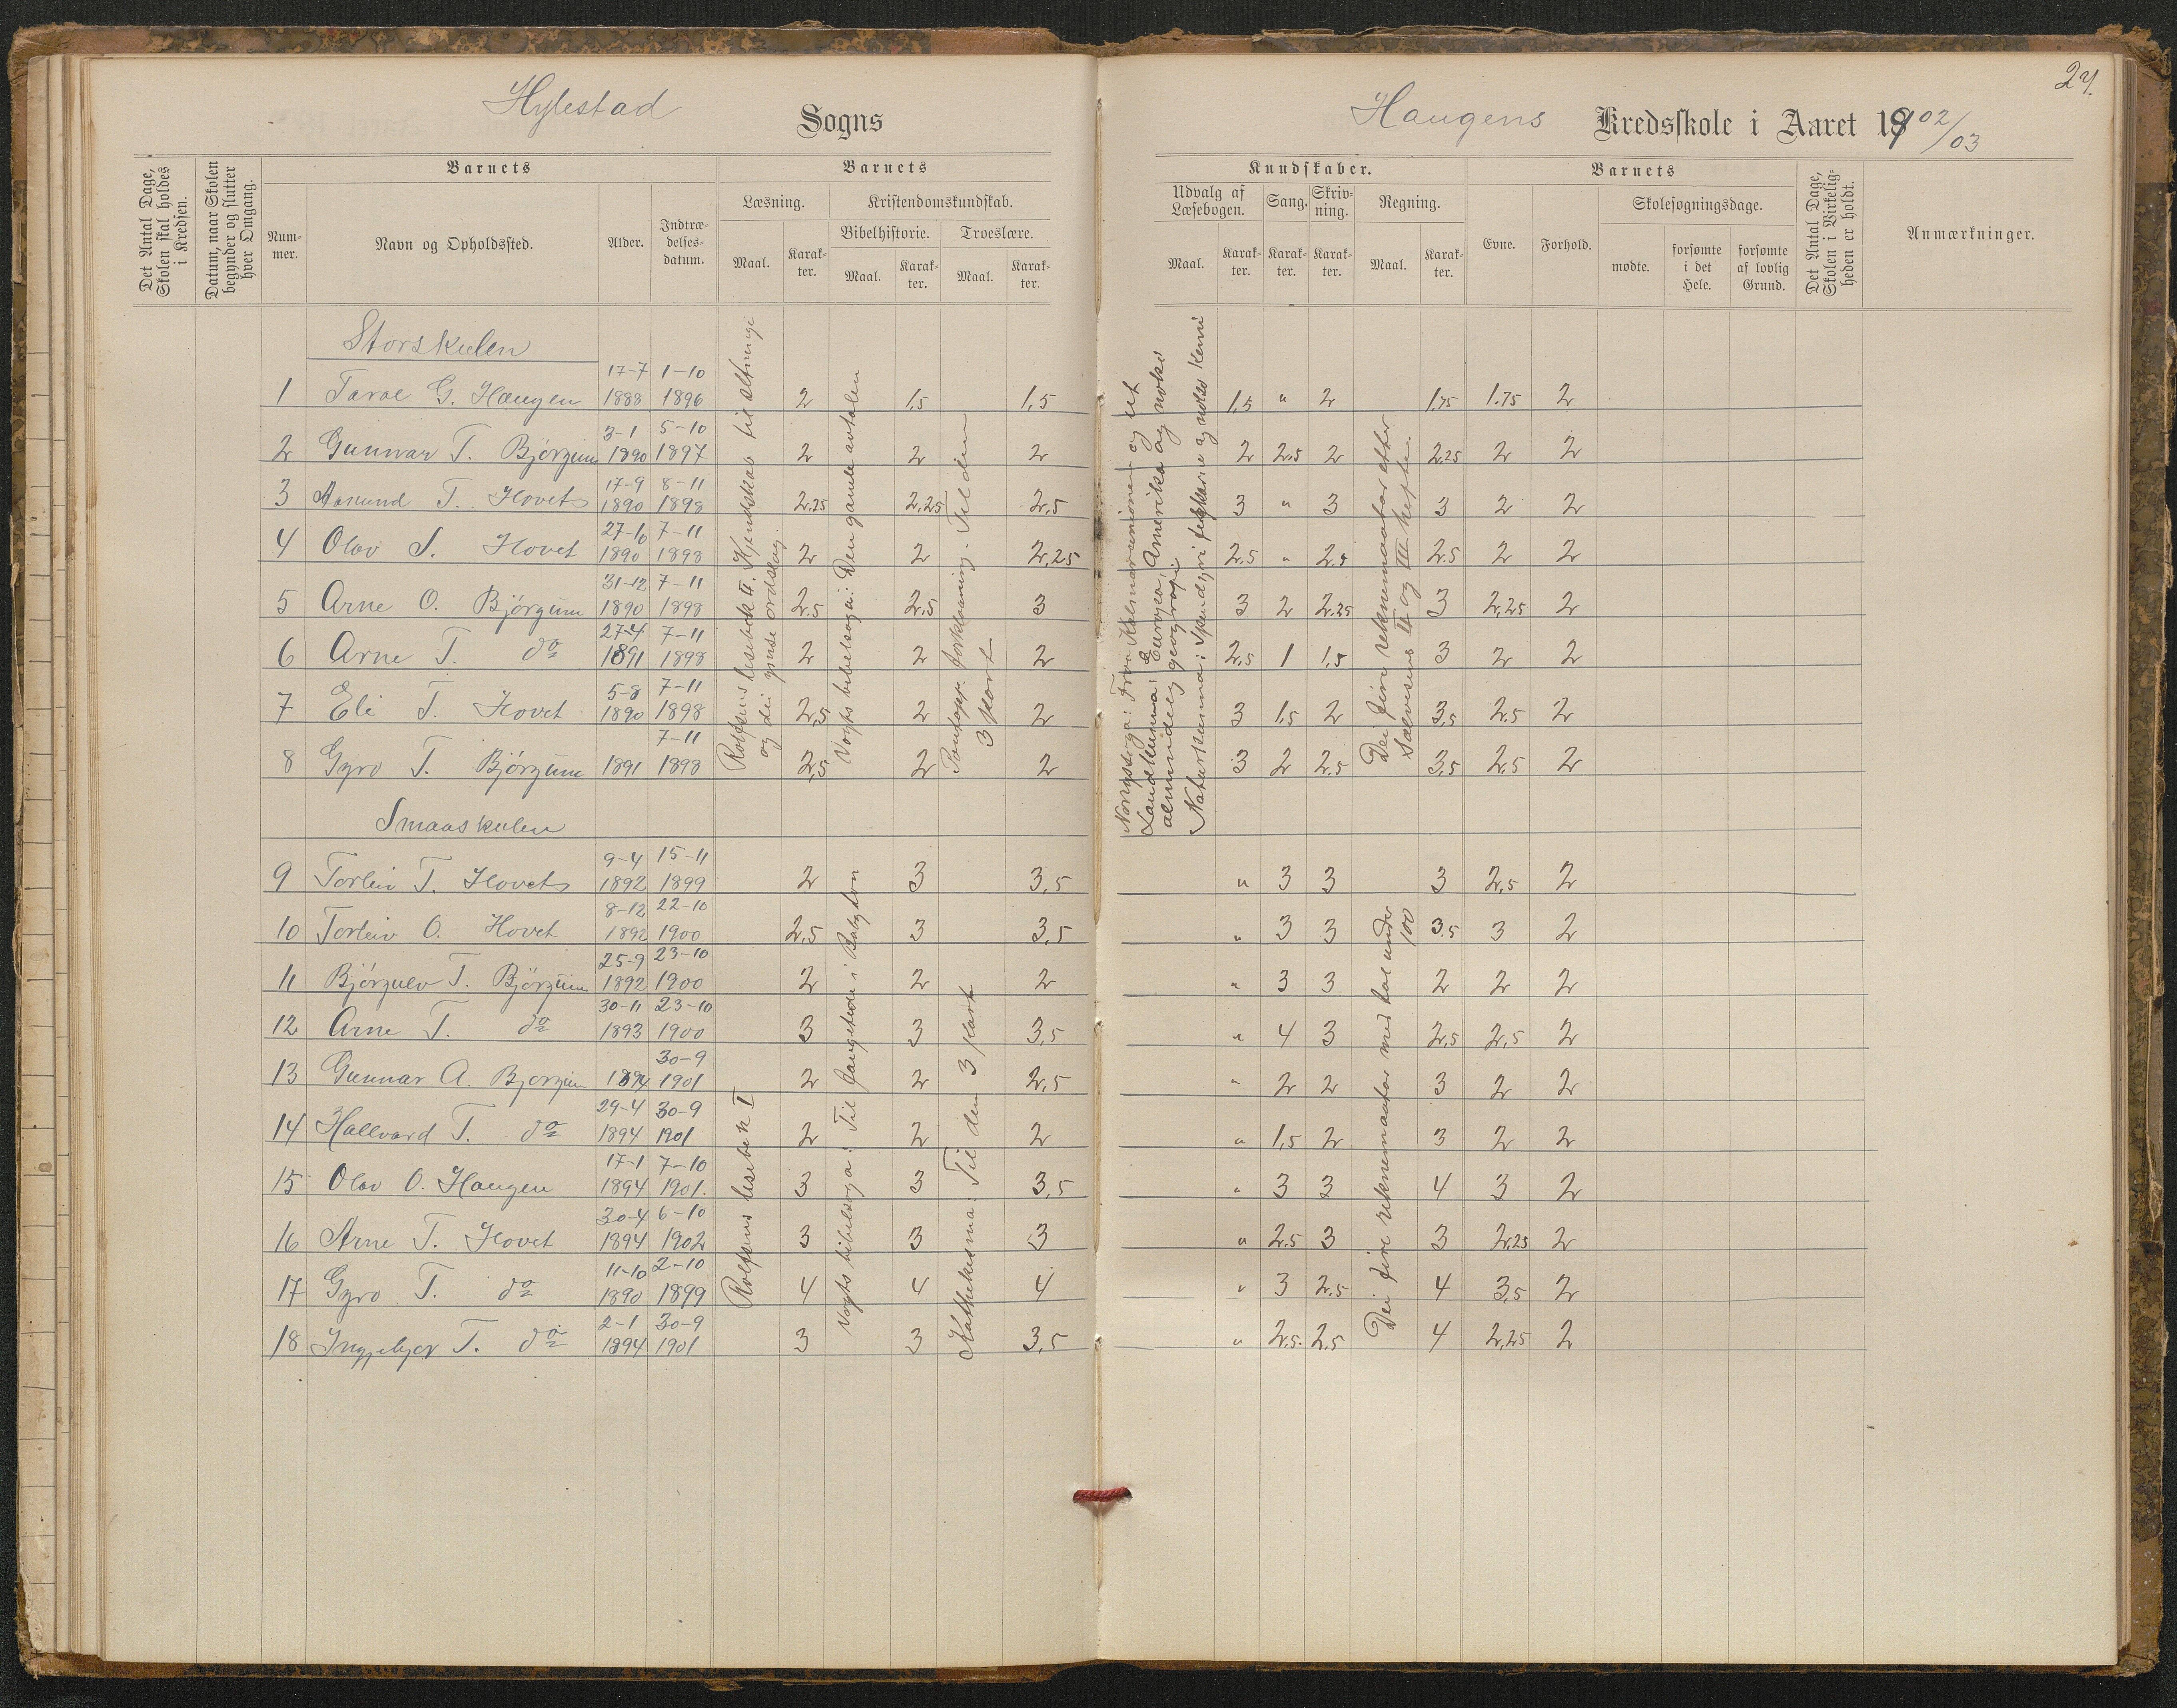 Hylestad Sogns
Haugens Kredsskole i Aaret 1902/03
24.
Det Antal Dage, Skolen skal holdes i Kredsen.
Datum, naar Skolen begynder og slutter hver Omgang.
Barnets
Nummer.
Navn og Opholdssted.
Alder.
Indtrædelsesdatum.
Barnets
Læsning.
Maal.
Karakter.
Kristendomskundskab.
Bibelhistorie.
Maal.
Karakter.
Troeslære.
Maal.
Karakter.
Kundskaber.
Udvalg af Læsebogen.
Maal.
Karakter.
Sang.
Karakter.
Skrivning.
Karakter.
Regning.
Maal.
Karakter.
Barnets
Evne.
Forhold.
Skolesøgningsdage.
mødte.
forsømte i det Hele.
forsømte af lovlig Grund.
Det Antal Dage, Skolen i Virkeligheden er holdt.
Anmærkninger.
Storskulen
1 Taral G. Haugen 17-7 1888 1-10 1896 2 1,5 1,5 1,5 " 2 1.75 1.75 2
2 Gunnar T. Bjørgum 3-1 1890 5-10 1897 2 2 2 2 2.5 2 2.25 2 2
3 Aasmund T. Hovet 17-9 1890 8-11 1898 2.25 2,25 2,5 3 " 3 3 2 2
4 Olav S. Hovet 27-10 1890 7-11 1898 2 2 2,25 2.5 " 2.5 2.5 2 2
5 Arne O. Bjørgum 31-12 1890 7-11 1898 2.5 2.5 3 3 2 2.25 3 2,25 2
6 Arne T. do 27-4 1891 7-11 1898 2 2 2 2,5 1 1,5 3 2 2
7 Eli T. Hovet 5-8 1890 7-11 1898 2,5 2 2 3 1,5 2 3,5 2.5 2
8 Gyro T. Bjørgum 1891 7-11 1898 2,5 2 2 3 2 2.5 3,5 2.5 2
Rolfsens lesebok II. Kjendskab til
og dei ymse ordslag.
Vogts bibelsoga: Den gamle avtalen
Pontopp. forklaaring. Til den
3 part
Noregssoga: Fraa Kalmarunionen og ut
Landkunna: Europa, Amerika og noko
almindeleg geografi
Naturkunna: og noko
Dei fire reknemaatar etter
II og III. hefte.
Smaaskulen
9 Torleiv T. Hovet 9-4 1892 15-11 1899 2 3 3,5 " 3 3 3 2,5 2
10 Torleiv O. Hovet 8-12 1892 22-10 1900 2,5 3 3,5 " 3 3 3,5 3 2
11 Bjørgulv T. Bjørgum 25-9 1892 23-10 1900 2 2 2 " 3 3 2 2 2
12 Arne T. do 30-11 1893 23-10 1900 3 3 3,5 " 4 3 2,5 2,5 2
13 Gunnar A. Bjorgum 1894 30-9 1901 2 2 2,5 " 2 2 3 2 2
14 Hallvard T. do 29-4 1894 30-9 1901 2 2 2 " 1,5 2 3 2 2
15 Olav O. Haugen 17-1 1894 7-10 1901. 3 3 3,5 " 3 3 4 3 2
16 Arne T. Hovet 30-4 1894 6-10 1902 3 3 3 " 2.5 3 3 2,25 2
17 Gyro T. do 11-10 1890 2-10 1899 4 4 4 " 3 2.5 4 3,5 2
18 Ingebjør T. do 2-1 1894 30-9 1901 3 3 3,5 " 2,5. 2,5 4 2,25 2
Rolfsens lesebok I
Vogts bibelsoga: Til fangetidi i Babylon
Kathekisma: Til den 3 part
Dei fire reknemaatar med tal under
100